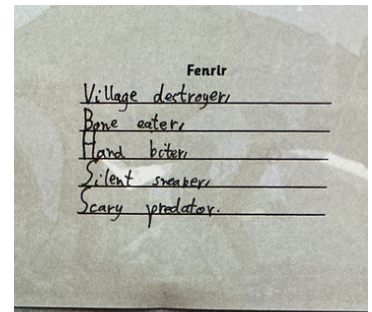 Fenrir
Village dectroyer,
Bone eater,
Hand biter,
Silent sneaper,
Scary predator.